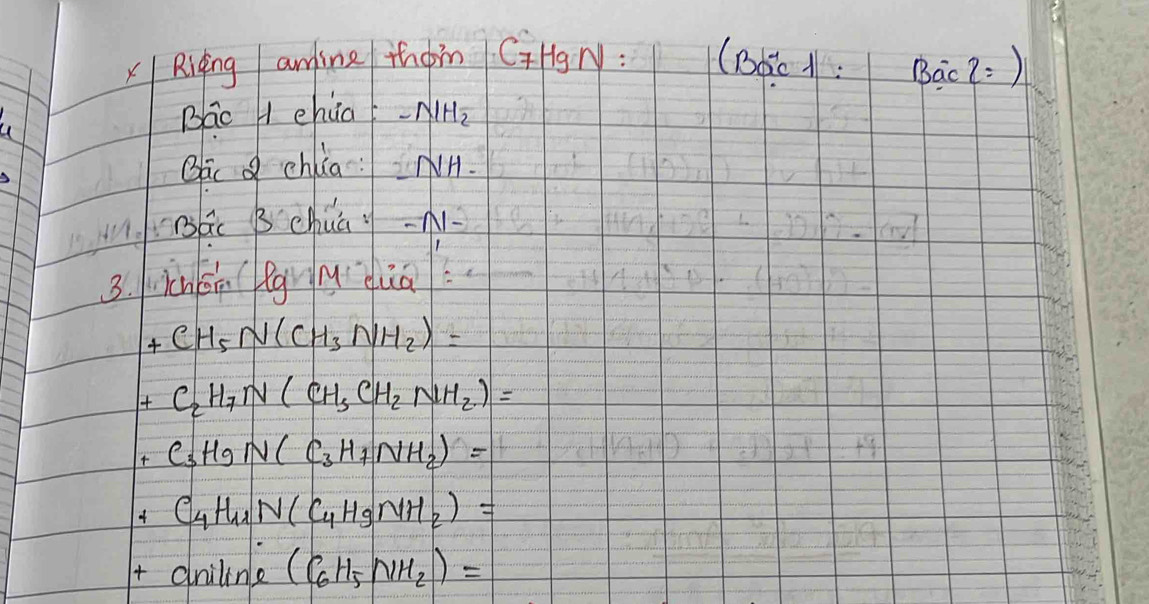 x Riêng amine thơm C₇H₉N: (Bậc 1: Bậc 2: )
Bậc 1 chứa: -NH₂
Bậc 2 chứa: -NH-
Bậc 3 chứa: -N-
3. Khối lg M của:
+ CH₅N(CH₃NH₂) =
+ C₂H₇N (CH₃CH₂NH₂) =
+ C₃H₉N (C₃H₇NH₂) =
+ C₄H₁₁N (C₄H₉NH₂) =
+ aniline (C₆H₅NH₂) =